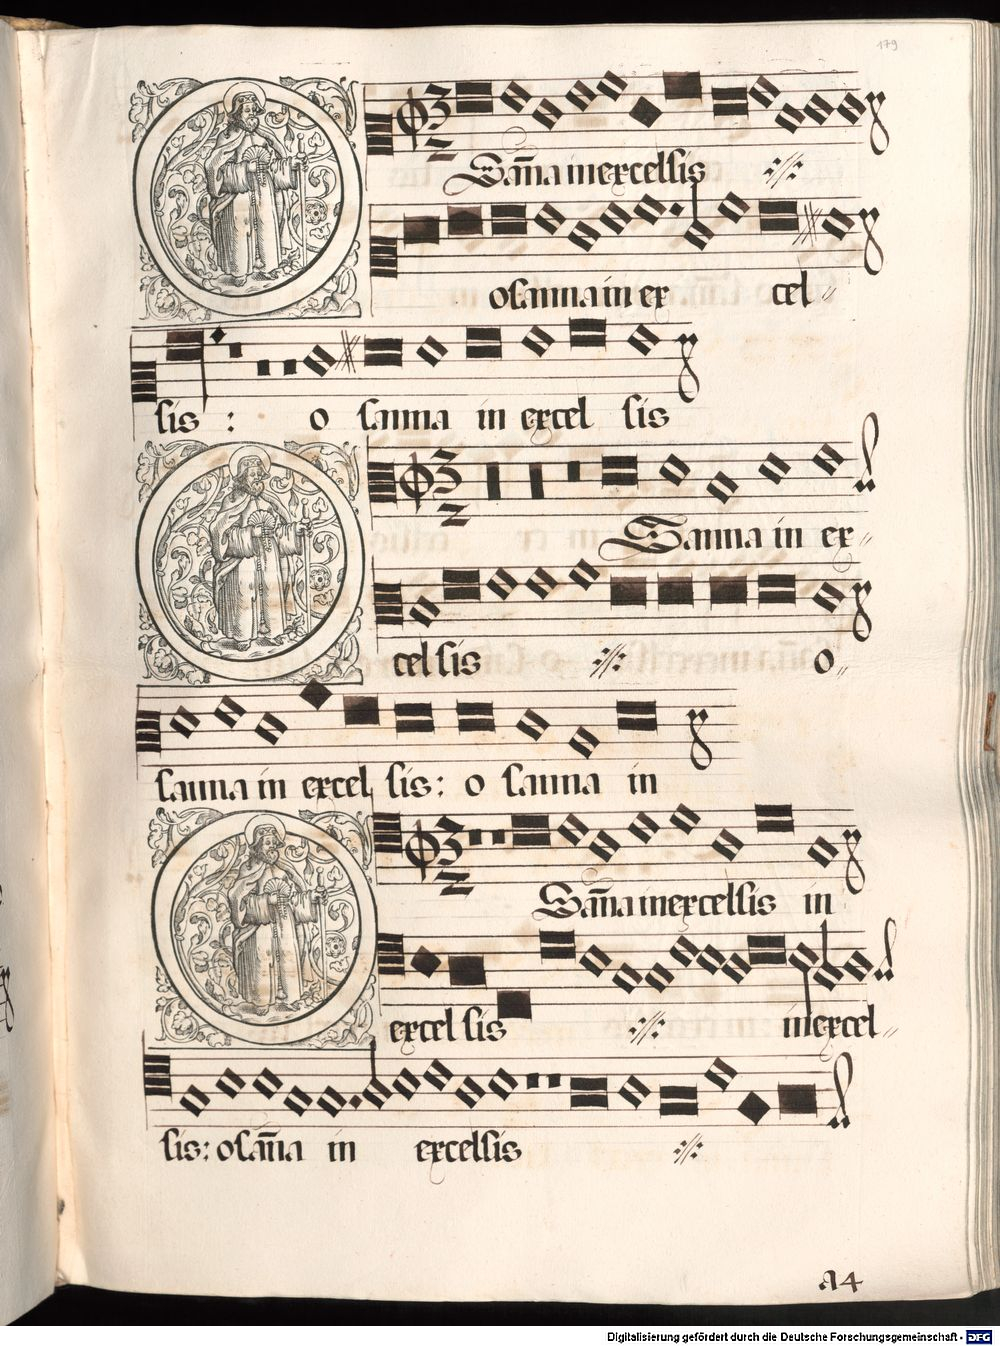 179
OSan̄a in excelsis ·//·
osanna in ex cel//
sis : o sanna in excel sis
OSanna in ex//
cel sis ·//· o//
sanna in excel sis : o sanna in
OSan̄a in excelsis in
excel sis ·//· in excel//
sis : osan̄a in excelsis ·//·
A4
Digitalisierung gefördert durch die Deutsche Forschungsgemeinschaft - DFG